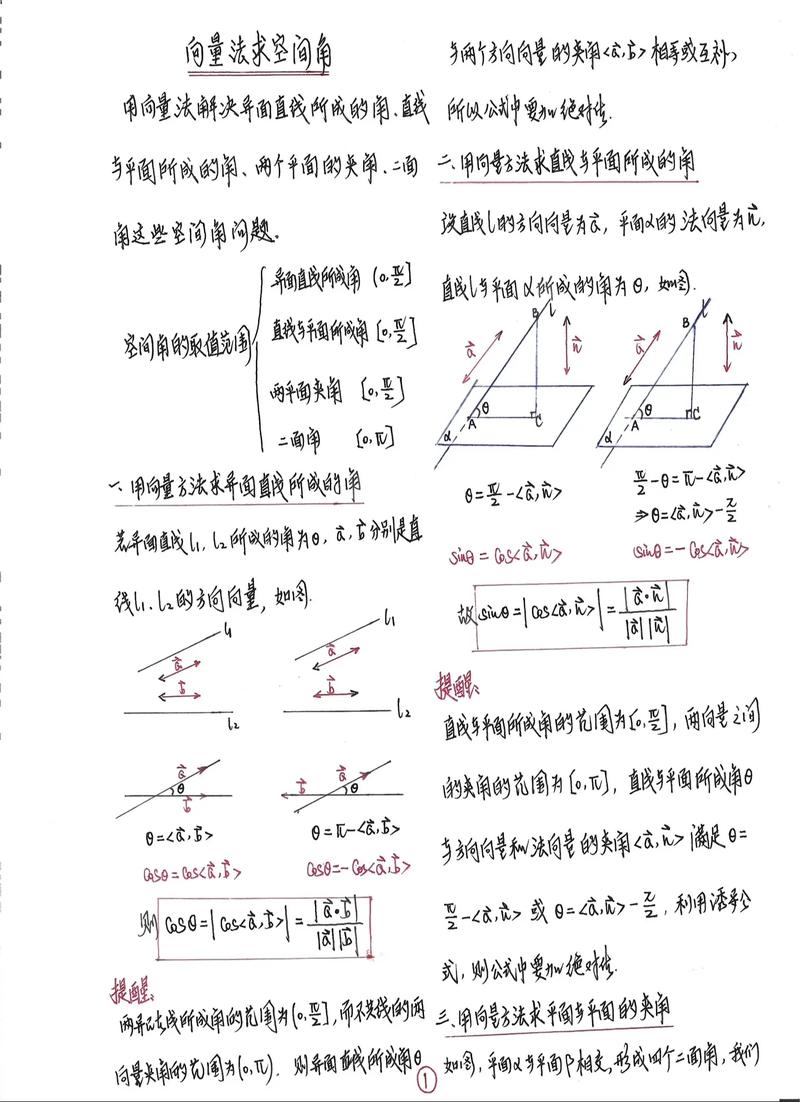 向量法求空间角
用向量法解决异面直线所成的角、直线
与平面所成的角、两个平面的夹角、二面
角这些空间角问题。
空间角的取值范围
异面直线所成角 (0,π/2]
直线与平面所成角 [0,π/2]
两平面夹角 [0,π/2]
二面角 [0,π]
一、用向量方法求异面直线所成的角
若异面直线l₁, l₂所成的角为θ, a⃗, b⃗分别是直
线l₁、l₂的方向向量, 如图.
l₁
a⃗
b⃗
l₂
l₁
a⃗
b⃗
l₂
a⃗
θ
b⃗
b⃗
a⃗
θ
θ=<a⃗,b⃗>
θ=π-<a⃗,b⃗>
cosθ=cos<a⃗,b⃗>
cosθ=-cos<a⃗,b⃗>
则 cosθ=|cos<a⃗,b⃗>|=|a⃗·b⃗|/|a⃗||b⃗|
提醒:
两异面直线所成角的范围为(0,π/2], 而不共线的两
向量夹角的范围为(0,π). 则异面直线所成角θ
与两个方向向量的夹角<a⃗,b⃗>相等或互补,
所以公式中要加绝对值.
二、用向量方法求直线与平面所成的角
设直线l的方向向量为a⃗, 平面α的法向量为n⃗,
直线l与平面α所成的角为θ, 如图.
B
l
a⃗
n⃗
θ
A
C
α
B
l
a⃗
n⃗
θ
A
C
α
θ=π/2-<a⃗,n⃗>
π/2-θ=π-<a⃗,n⃗>
⇒θ=<a⃗,n⃗>-π/2
sinθ=cos<a⃗,n⃗>
sinθ=-cos<a⃗,n⃗>
故 sinθ=|cos<a⃗,n⃗>|=|a⃗·n⃗|/|a⃗||n⃗|
提醒:
直线与平面所成角的范围为[0,π/2], 两向量之间
的夹角的范围为[0,π], 直线与平面所成角θ
与方向向量和法向量的夹角<a⃗,n⃗>满足θ=
π/2-<a⃗,n⃗>或θ=<a⃗,n⃗>-π/2, 利用诱导公
式, 则公式中要加绝对值.
三、用向量方法求平面与平面的夹角
如图, 平面α与平面β相交, 形成四个二面角, 我们
1